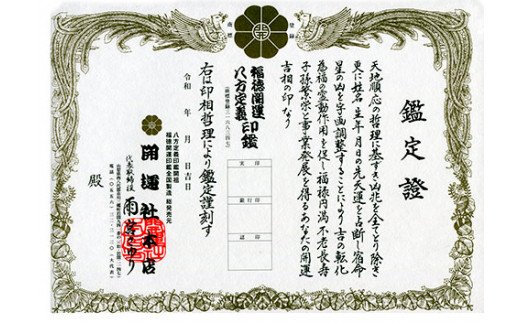 登録
商標
鑑定證
天地順応の哲理に基ずき凶兆を全てとり除き
更に姓名、生年月日の先天運を占断し宿命
星の凶を字画調整することにより吉の転化
慈福の霊動作用を促し福禄円満不老長寿
子孫繁栄と事業発展を得るあなたの開運
吉相の印なり
福徳開運
八方定義印鑑
実印
銀行印
認印
右は印相哲理により鑑定謹刻す
令和 年 月 日吉日
八方定義印鑑開祖
福徳開運印鑑全国製造・総発売元
開運社本店
代表取締役
殿